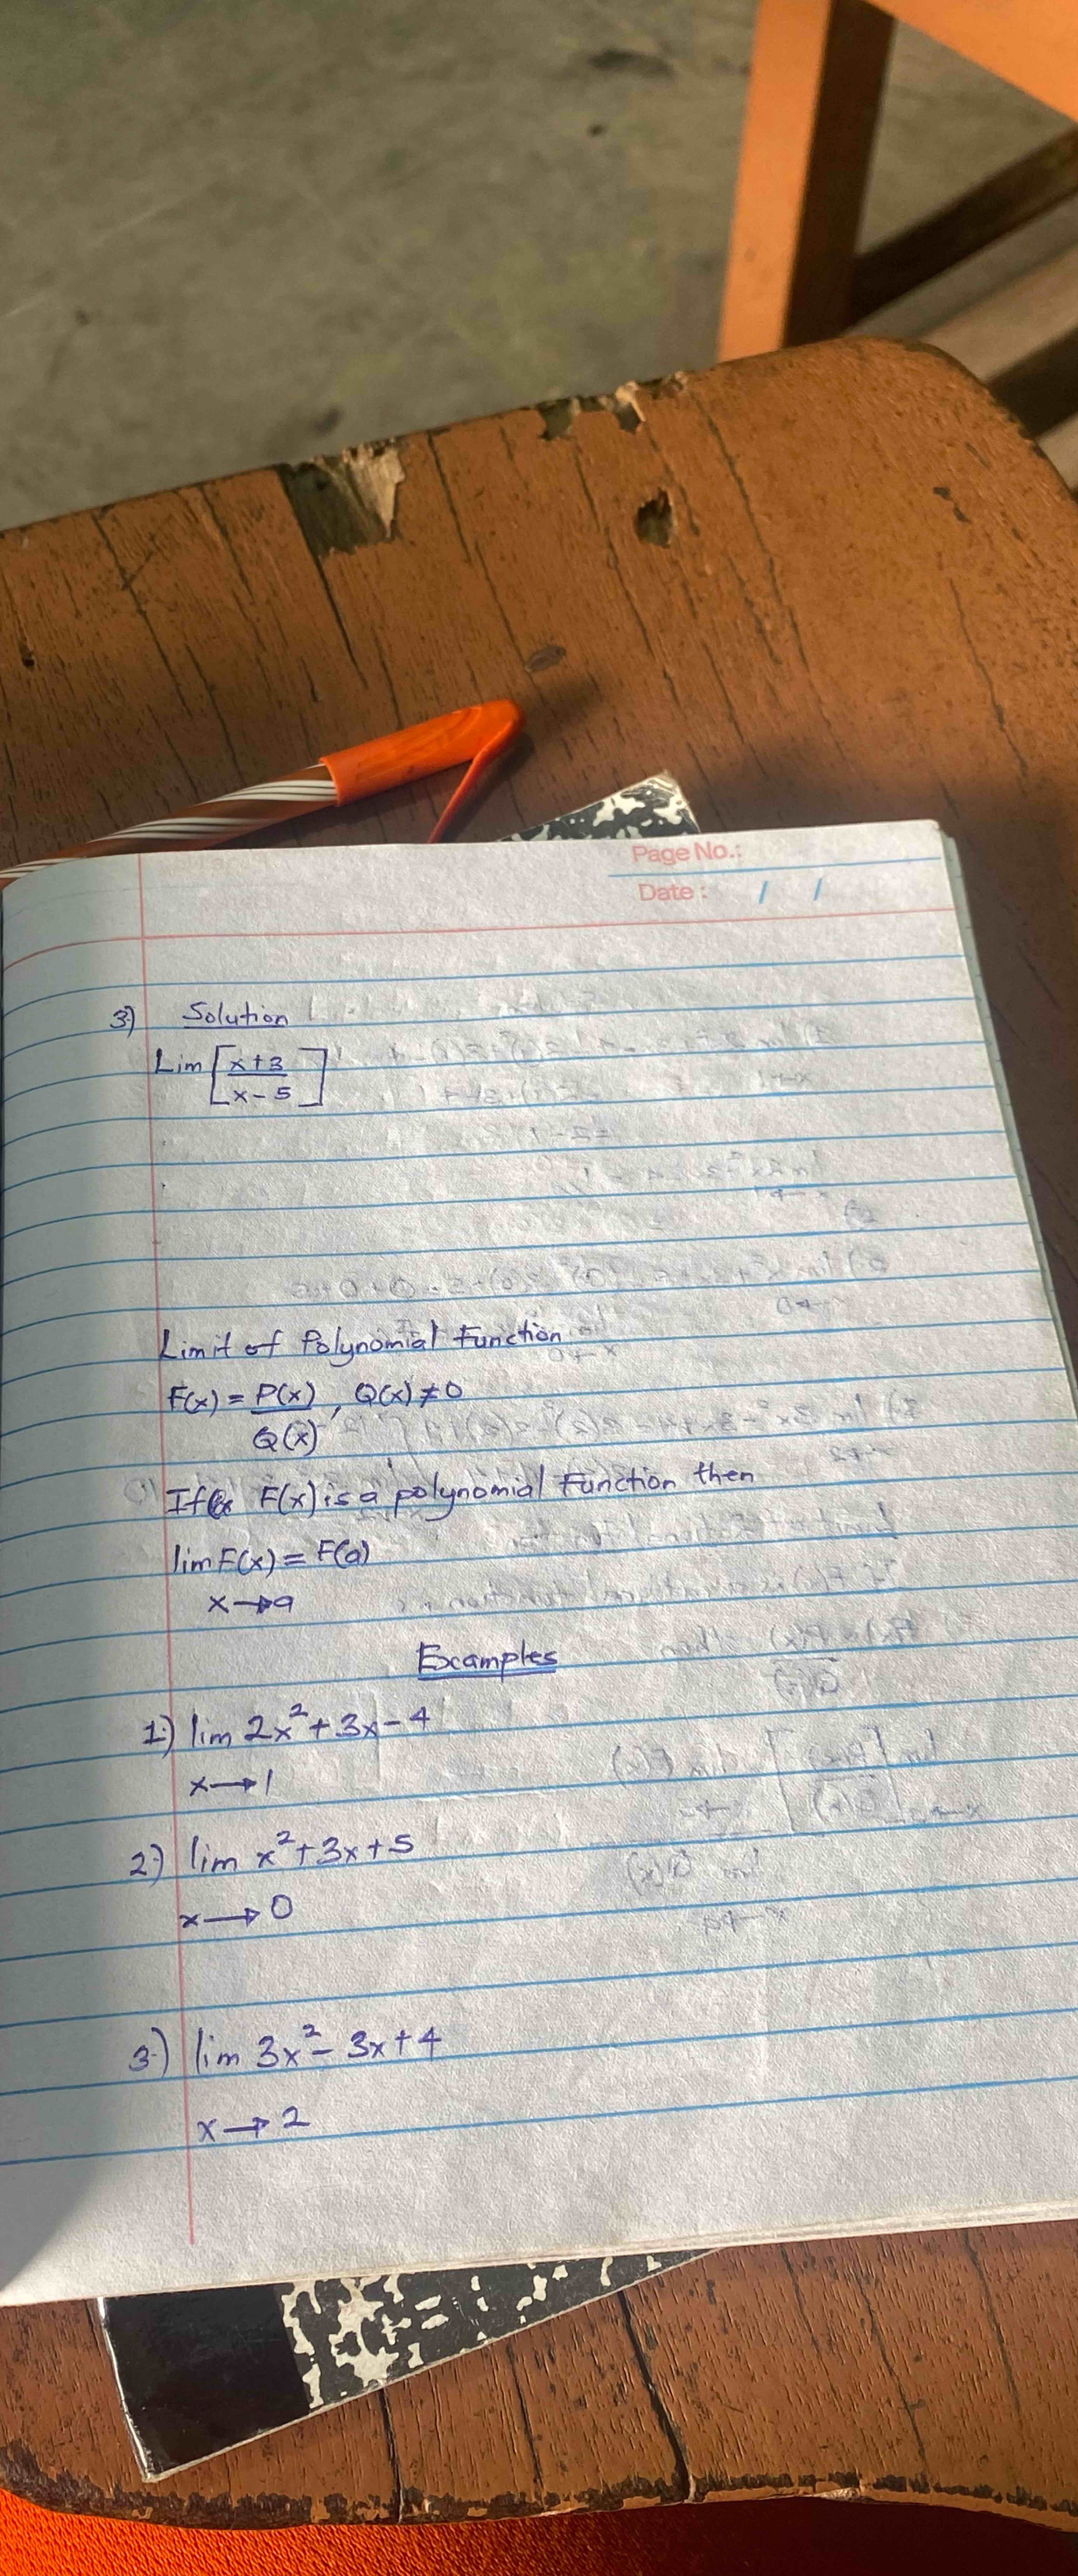 Page No.:
Date : / /
3) Solution
Lim [x+3
x-5]
Limit of Polynomial Function
F(x) = P(x) , Q(x) ≠ 0
Q(x)
If F(x) is a polynomial Function then
lim F(x) = F(a)
x→a
Examples
1.) lim 2x²+3x-4
x→1
2.) lim x²+3x+5
x→0
3.) lim 3x²-3x+4
x→2